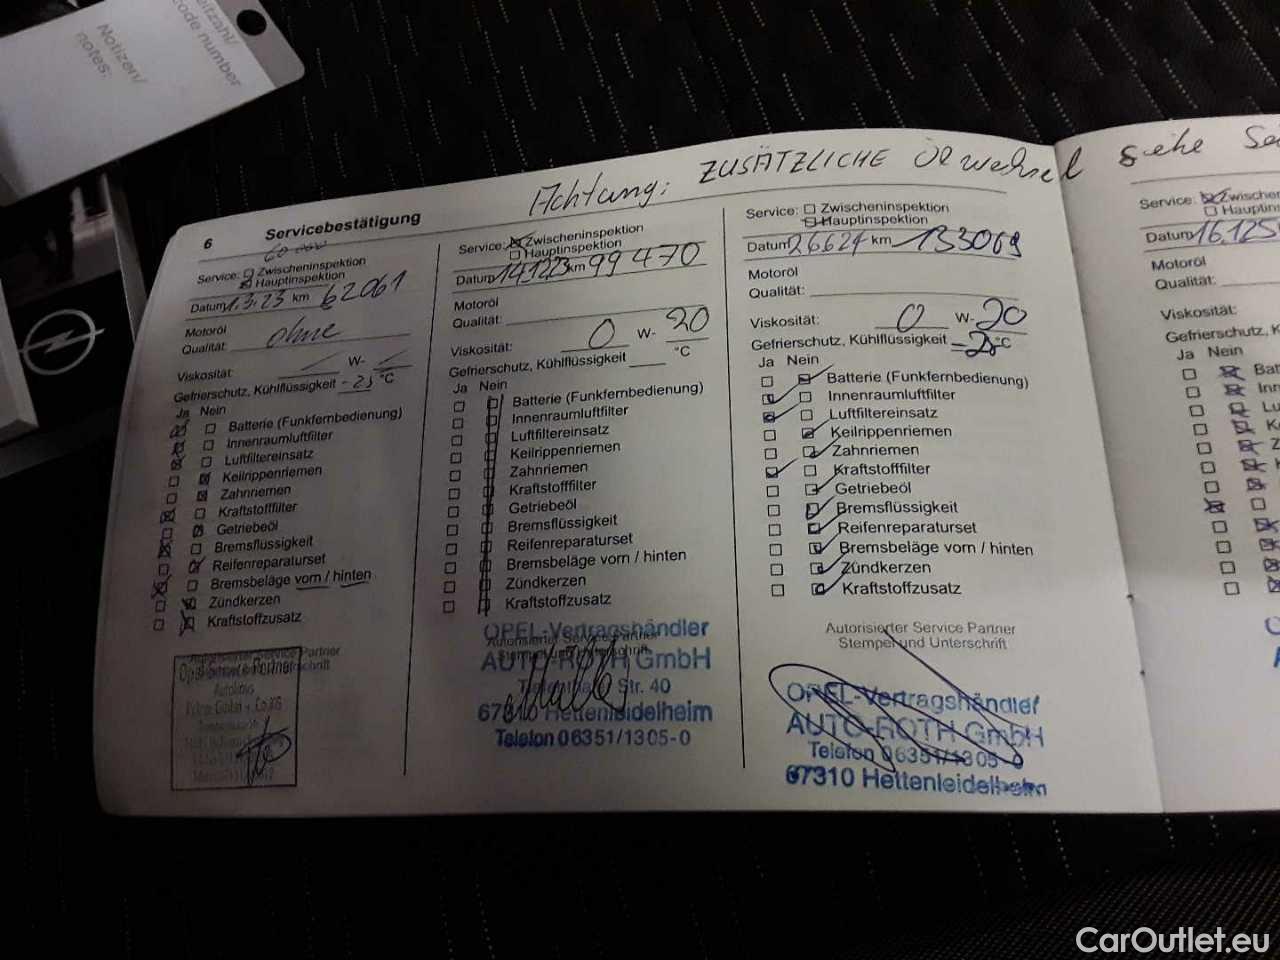 code number
Notizen/
notes:
Achtung: ZUSÄTZLICHE Ölwechsel siehe
6 Servicebestätigung
60 000
Service: Zwischeninspektion
Hauptinspektion
Datum 1.3.23 km 62061
Motoröl
Qualität: ohne
Viskosität: W-
Gefrierschutz, Kühlflüssigkeit -25 °C
Ja Nein
Batterie (Funkfernbedienung)
Innenraumluftfilter
Luftfiltereinsatz
Keilrippenriemen
Zahnriemen
Kraftstofffilter
Getriebeöl
Bremsflüssigkeit
Reifenreparaturset
Bremsbeläge vorn / hinten
Zündkerzen
Kraftstoffzusatz
Autorisierter Service Partner
Opel Service Partner
Service: Zwischeninspektion
Hauptinspektion
Datum 14.12.23 km 99470
Motoröl
Qualität:
Viskosität: 0 W- 20
Gefrierschutz, Kühlflüssigkeit °C
Ja Nein
Batterie (Funkfernbedienung)
Innenraumluftfilter
Luftfiltereinsatz
Keilrippenriemen
Zahnriemen
Kraftstofffilter
Getriebeöl
Bremsflüssigkeit
Reifenreparaturset
Bremsbeläge vorn / hinten
Zündkerzen
Kraftstoffzusatz
Autorisierter Service Partner
Stempel und Unterschrift
OPEL-Vertragshändler
AUTO-ROTH GmbH
Str. 40
67310 Hettenleidelheim
Telefon 06351/1305-0
Service: Zwischeninspektion
Hauptinspektion
Datum 26624 km 133069
Motoröl
Qualität:
Viskosität: 0 W- 20
Gefrierschutz, Kühlflüssigkeit -28 °C
Ja Nein
Batterie (Funkfernbedienung)
Innenraumluftfilter
Luftfiltereinsatz
Keilrippenriemen
Zahnriemen
Kraftstofffilter
Getriebeöl
Bremsflüssigkeit
Reifenreparaturset
Bremsbeläge vorn / hinten
Zündkerzen
Kraftstoffzusatz
Autorisierter Service Partner
Stempel und Unterschrift
OPEL-Vertragshändler
AUTO-ROTH GmbH
Telefon 06351/1305-0
67310 Hettenleidelheim
Service: Zwischeninspe
Hauptinsp
Datum
Motoröl
Qualität:
Viskosität:
Gefrierschutz, K
Ja Nein
Batt
CarOutlet.eu